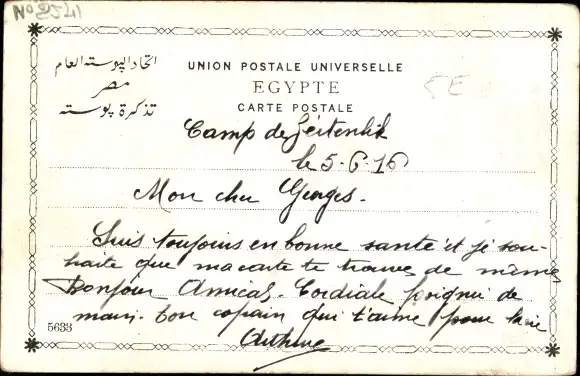 No 2541
اتحاد البوسته العام
مصر
تذكرة بوسته
UNION POSTALE UNIVERSELLE
EGYPTE
CARTE POSTALE
5E
Camp de Zeitenlik
le 5-6-16
Mon cher Georges.
Suis toujours en bonne santé et je sou-
haite que ma carte te trouve de même
Bonjour Amical. Cordiale poignée de
main. ton copain qui t'aime pour la vie
5633
Arthur